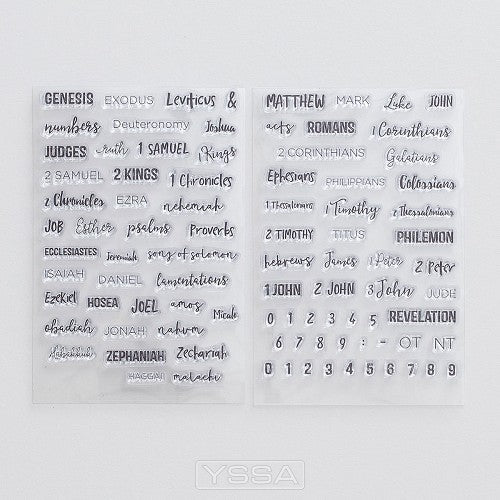 GENESIS EXODUS Leviticus &
numbers Deuteronomy Joshua
JUDGES ruth 1 SAMUEL 1 Kings
2 SAMUEL 2 KINGS 1 Chronicles
2 Chronicles EZRA nehemiah
JOB Esther psalms Proverbs
ECCLESIASTES Jeremiah song of solomon
ISAIAH DANIEL lamentations
Ezekiel HOSEA JOEL amos Micah
obadiah JONAH nahum
Habakkuk ZEPHANIAH Zechariah
HAGGAI malachi
MATTHEW MARK Luke JOHN
acts ROMANS 1 Corinthians
2 CORINTHIANS Galatians
Ephesians PHILIPPIANS Colossians
1 Thessalonians 1 Timothy 2 Thessalonians
2 TIMOTHY TITUS PHILEMON
hebrews James 1 Peter 2 Peter
1 JOHN 2 JOHN 3 John JUDE
0 1 2 3 4 5 REVELATION
6 7 8 9 : - OT NT
0 1 2 3 4 5 6 7 8 9
YSSA